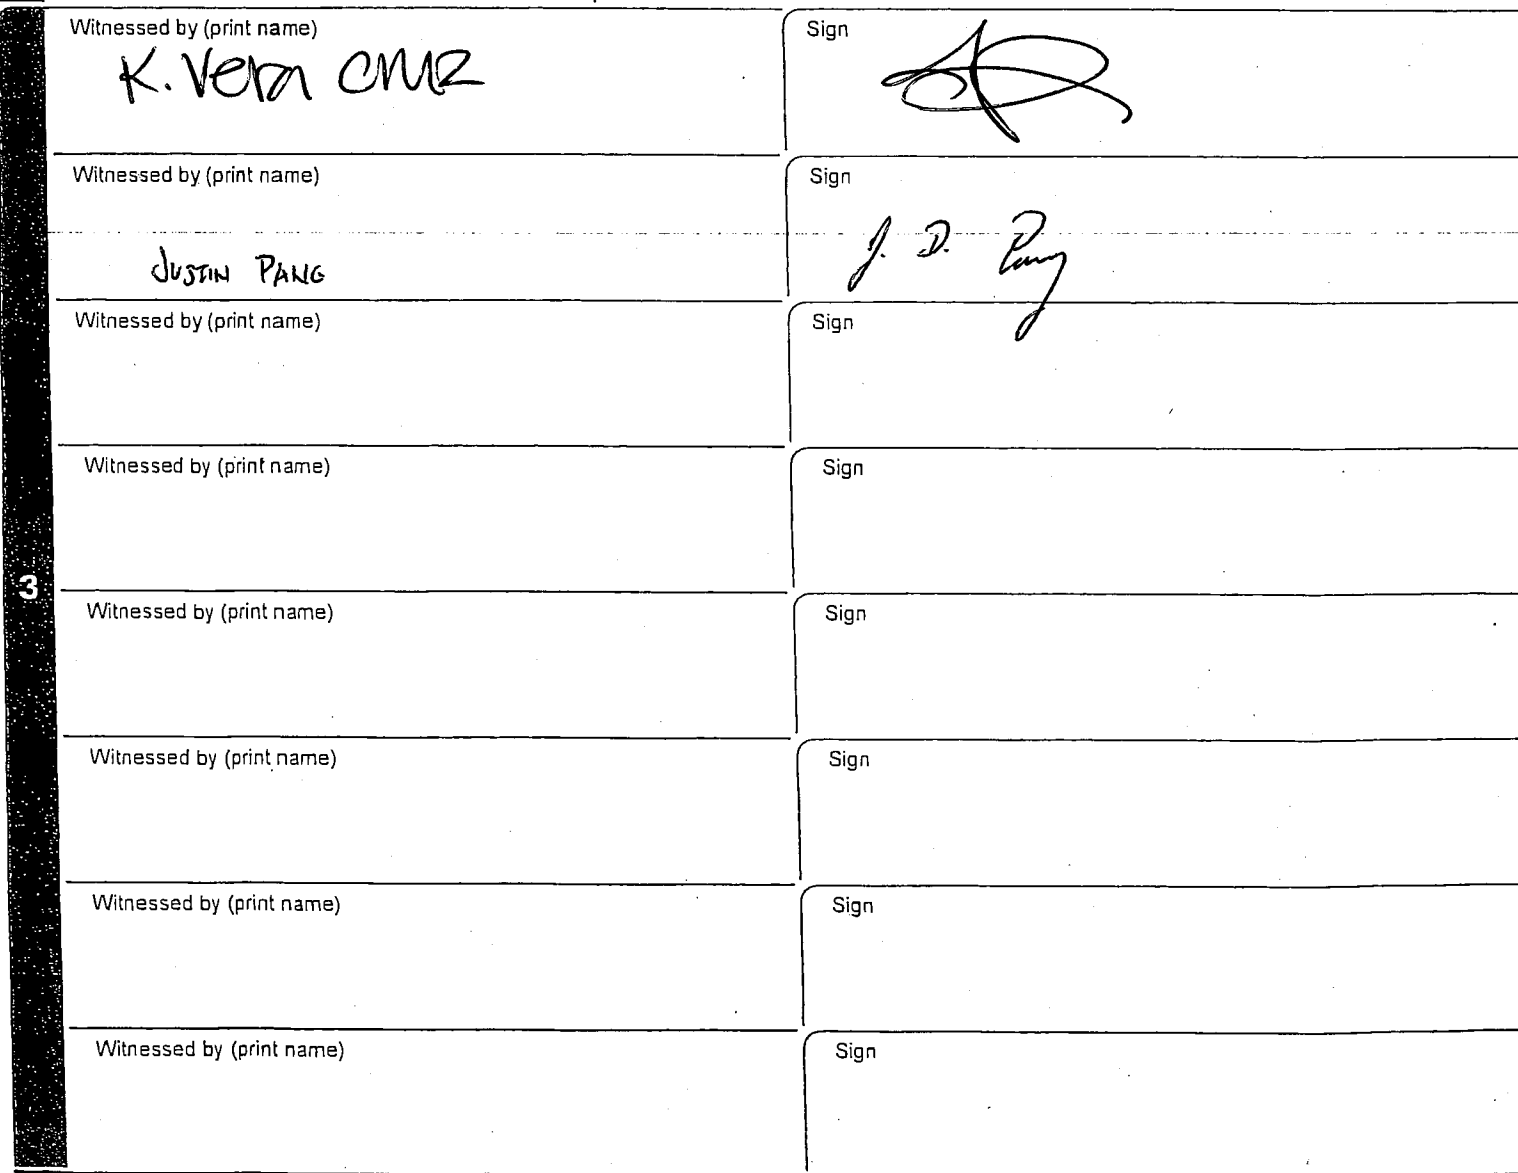 Witnessed by (print name) Sign
K. Vera Cruz
Witnessed by (print name) Sign
JUSTIN PANG J. D. Pang
Witnessed by (print name) Sign
Witnessed by (print name) Sign
3
Witnessed by (print name) Sign
Witnessed by (print name) Sign
Witnessed by (print name) Sign
Witnessed by (print name) Sign